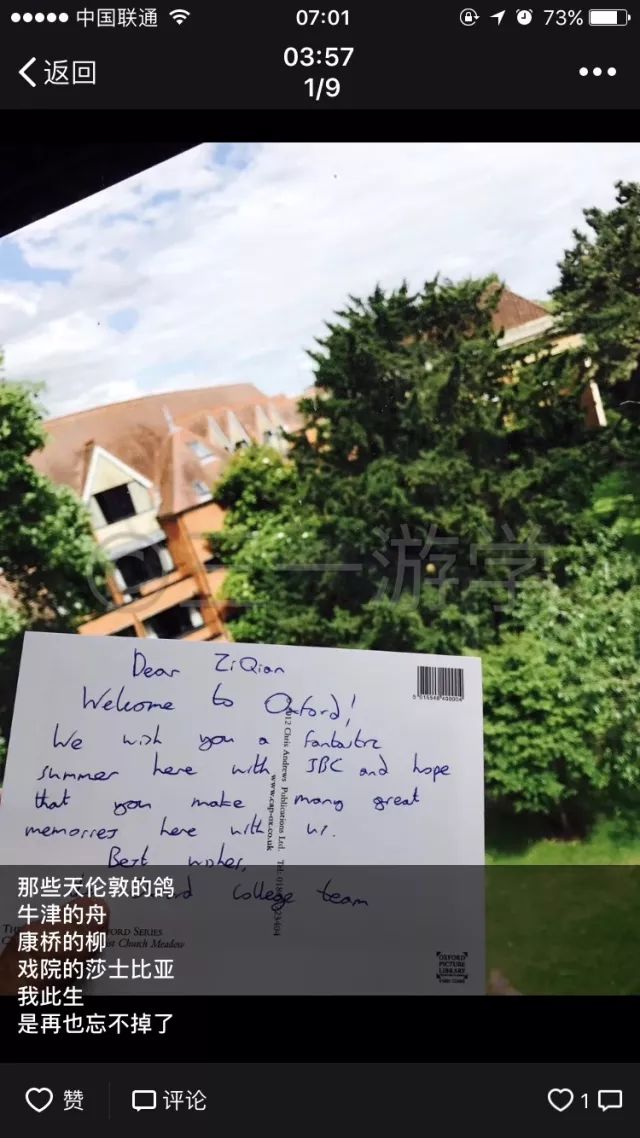 中国联通
07:01
73%
返回
03:57
1/9
三一游学
Dear ZiQian
Welcome to Oxford!
We wish you a fantastic
summer here with SBC and hope
that you make many great
memories here with us.
Best wishes,
college team
2012 Chris Andrews Publications Ltd. Tel:
www.cap-ox.co.uk
OXFORD SERIES
Christ Church Meadow
OXFORD
PICTURE
LIBRARY
那些天伦敦的鸽
牛津的舟
康桥的柳
戏院的莎士比亚
我此生
是再也忘不掉了
赞
评论
1